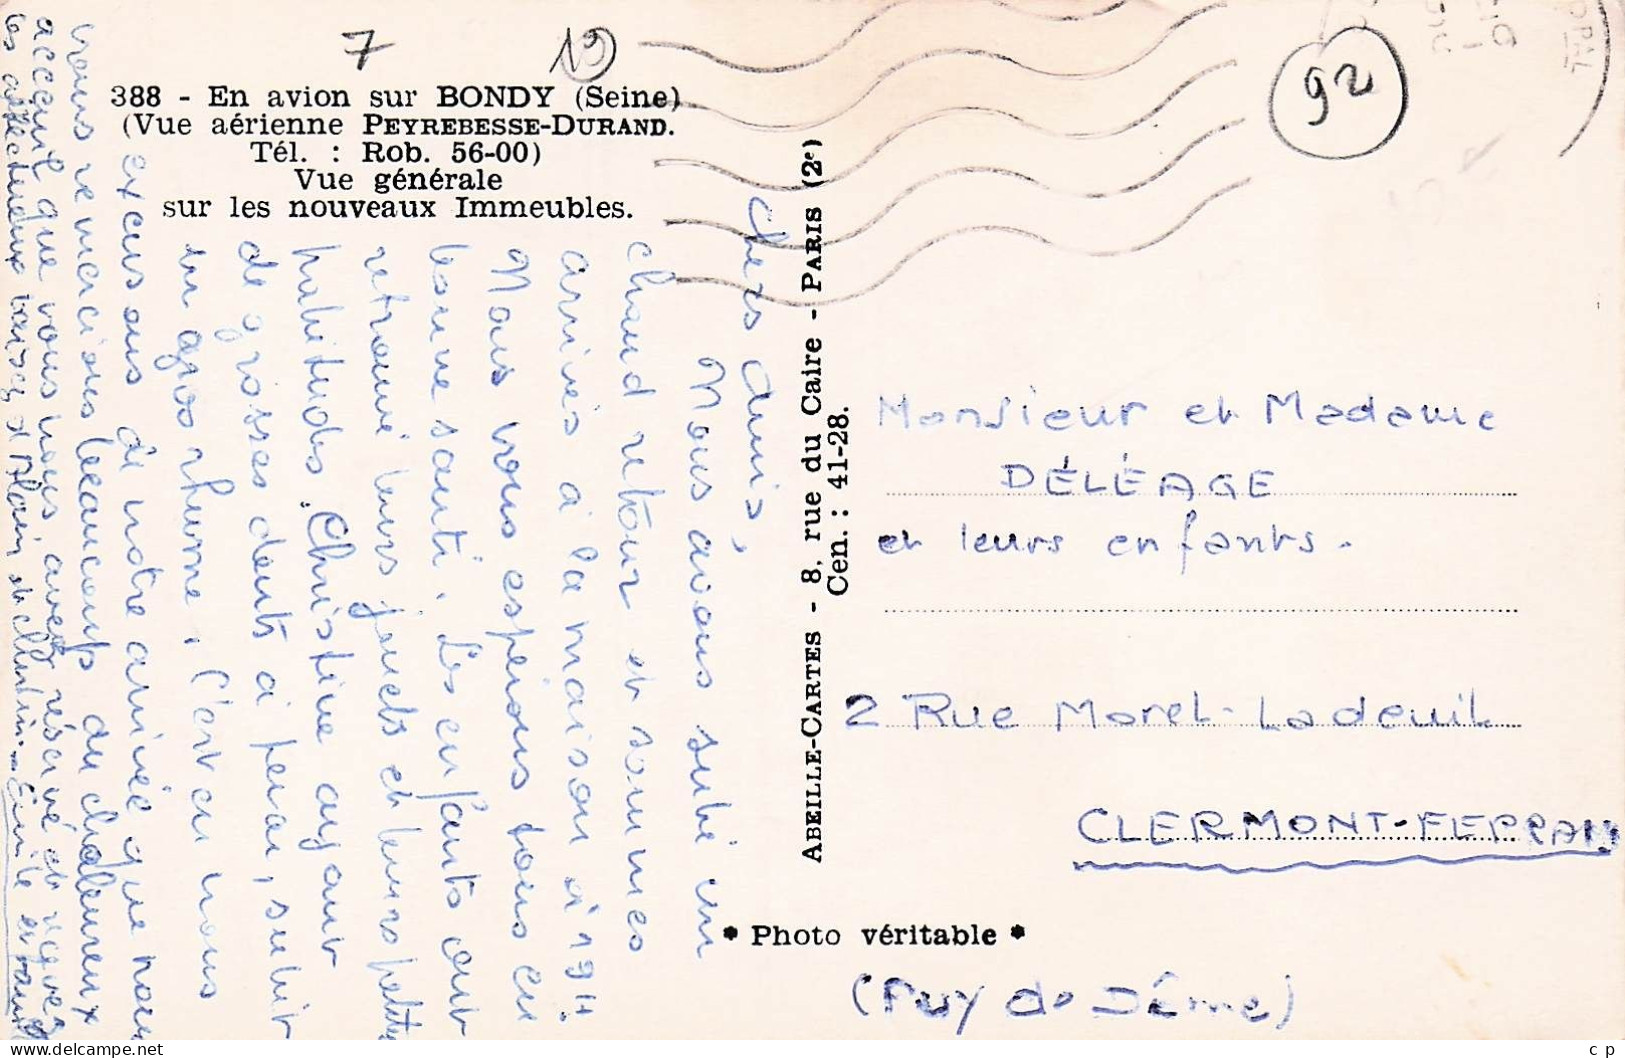 7
19
388 - En avion sur BONDY (Seine)
(Vue aérienne PEYREBESSE-DURAND.
Tél. : Rob. 56-00)
Vue générale
sur les nouveaux Immeubles.
Chers amis,
Nous avons subi un
chaud retour et sommes
arrivés à la maison à 19H.
Nous vous espérons tous en
bonne santé. Les enfants ont
retrouvé leurs jouets et leurs petites
habitudes. Christine ayant
de grosses dents à percer, subit
un gros rhume. C'est en nous
excusant de notre arrivée que nous
vous remercions beaucoup du chaleureux
accueil que vous nous avez réservé et recevez
les affectueux baisers d'Alain et Christine
ABEILLE-CARTES - 8, rue du Caire - PARIS (2e)
Cen. : 41-28.
* Photo véritable *
92
OPAL
Monsieur et Madame
DÉLÉAGE
et leurs enfants.
2 Rue Morel-Ladeuil
CLERMONT-FERRAND
(Puy de Dôme)
c p